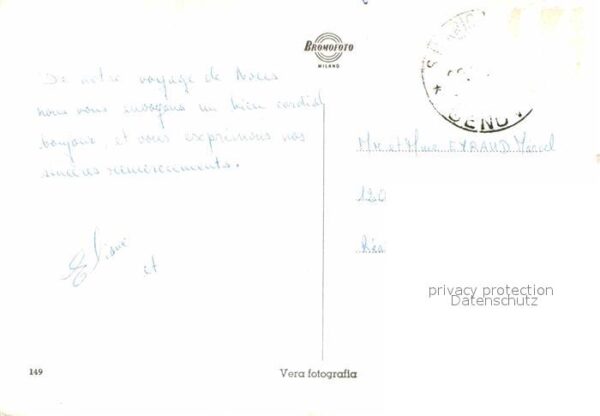 BROMOFOTO
MILANO
GENOV
De notre voyage de Noces
nous vous envoyons un bien cordial
bonjour, et vous exprimons nos
sincères remerciements.
Eliane
et
Mr et Mme EYRAUD Marcel
120
privacy protection
Datenschutz
149
Vera fotografia